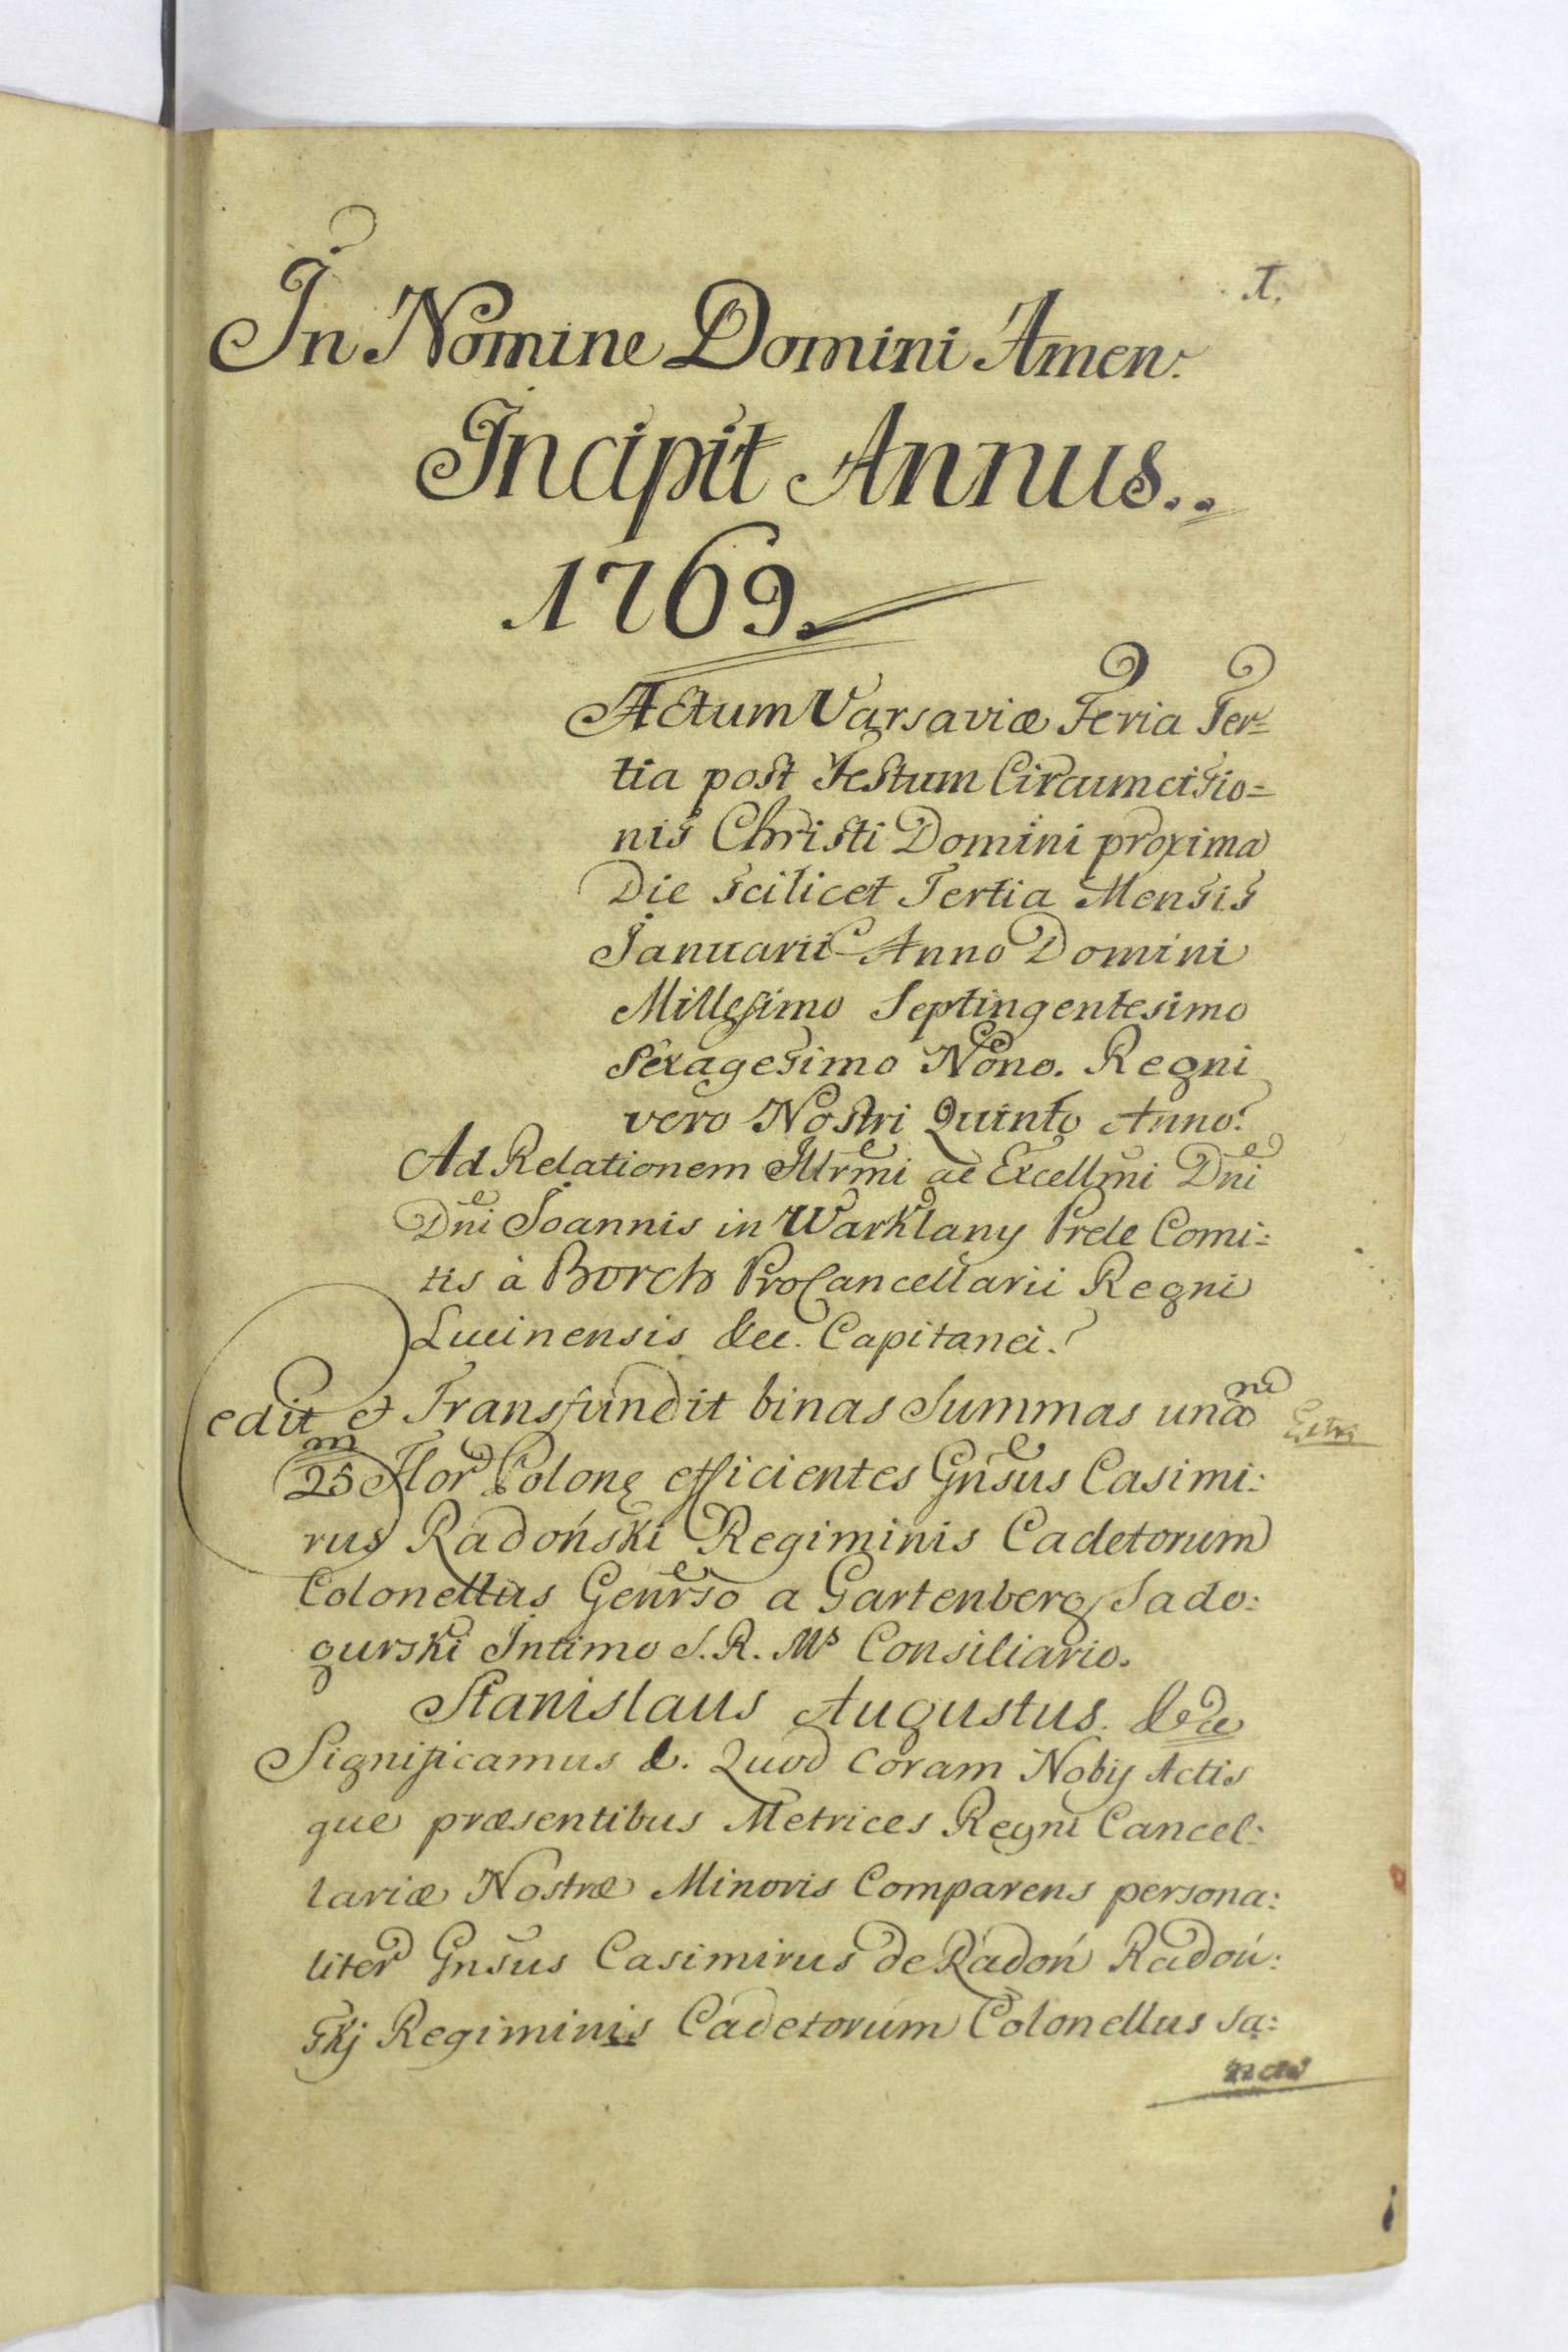 1.
In Nomine Domini Amen.
Incipit Annus..
1769.
Actum Varsaviæ Feria Ter=
tia post Festum Circumcisio=
nis Christi Domini proxima
Die scilicet Tertia Mensis
Januarii Anno Domini
Millesimo Septingentesimo
Sexagesimo Nono. Regni
vero Nostri Quinto Anno.
Ad Relationem Illrmi ac Excellmi Dni
Dni Joannis in Warklany Prele Comi:
tis à Borch ProCancellarii Regni
Lucinensis &cc. Capitanei.
Cedit et Transfundit binas Summas una
25 m Flor Polon efficientes Gnsus Casimi:
rus Radoński Regiminis Cadetorum
Colonellus Genrso a Gartenberg Sado:
gurski Intimo S. R. Ms Consiliario.
Stanislaus Augustus. &ca
Significamus &. Quod Coram Nobis Actis
que præsentibus Metrices Regni Cancel:
lariæ Nostræ Minoris Comparens persona:
liter Gnsus Casimirus de Radoń Radoń:
skj Regiminis Cadetorum Colonellus sa:
nus